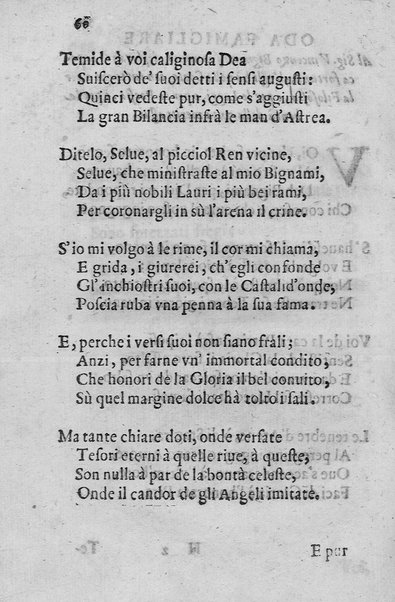 60
Temide à voi caliginosa Dea
Suiscerò de' suoi detti i sensi augusti:
Quinci vedeste pur, come s'aggiusti
La gran Bilancia infrà le man d'Astrea.
Ditelo, Selue, al picciol Ren vicine,
Selue, che ministraste al mio Bignami,
Da i più nobili Lauri i più bei rami,
Per coronargli in sù l'arena il crine.
S'io mi volgo à le rime, il cor mi chiama,
E grida, i giurerei, ch'egli confonde
Gl'inchiostri suoi, con le Castal d'onde,
Poscia ruba vna penna à la sua fama.
E, perche i versi suoi non siano frali;
Anzi, per farne vn' immortal condito,
Che honori de la Gloria il bel conuito,
Sù quel margine dolce hà tolto i sali.
Ma tante chiare doti, onde versate
Tesori eterni à quelle riue, à queste,
Son nulla à par de la bontà celeste,
Onde il candor de gli Angeli imitate.
E pur